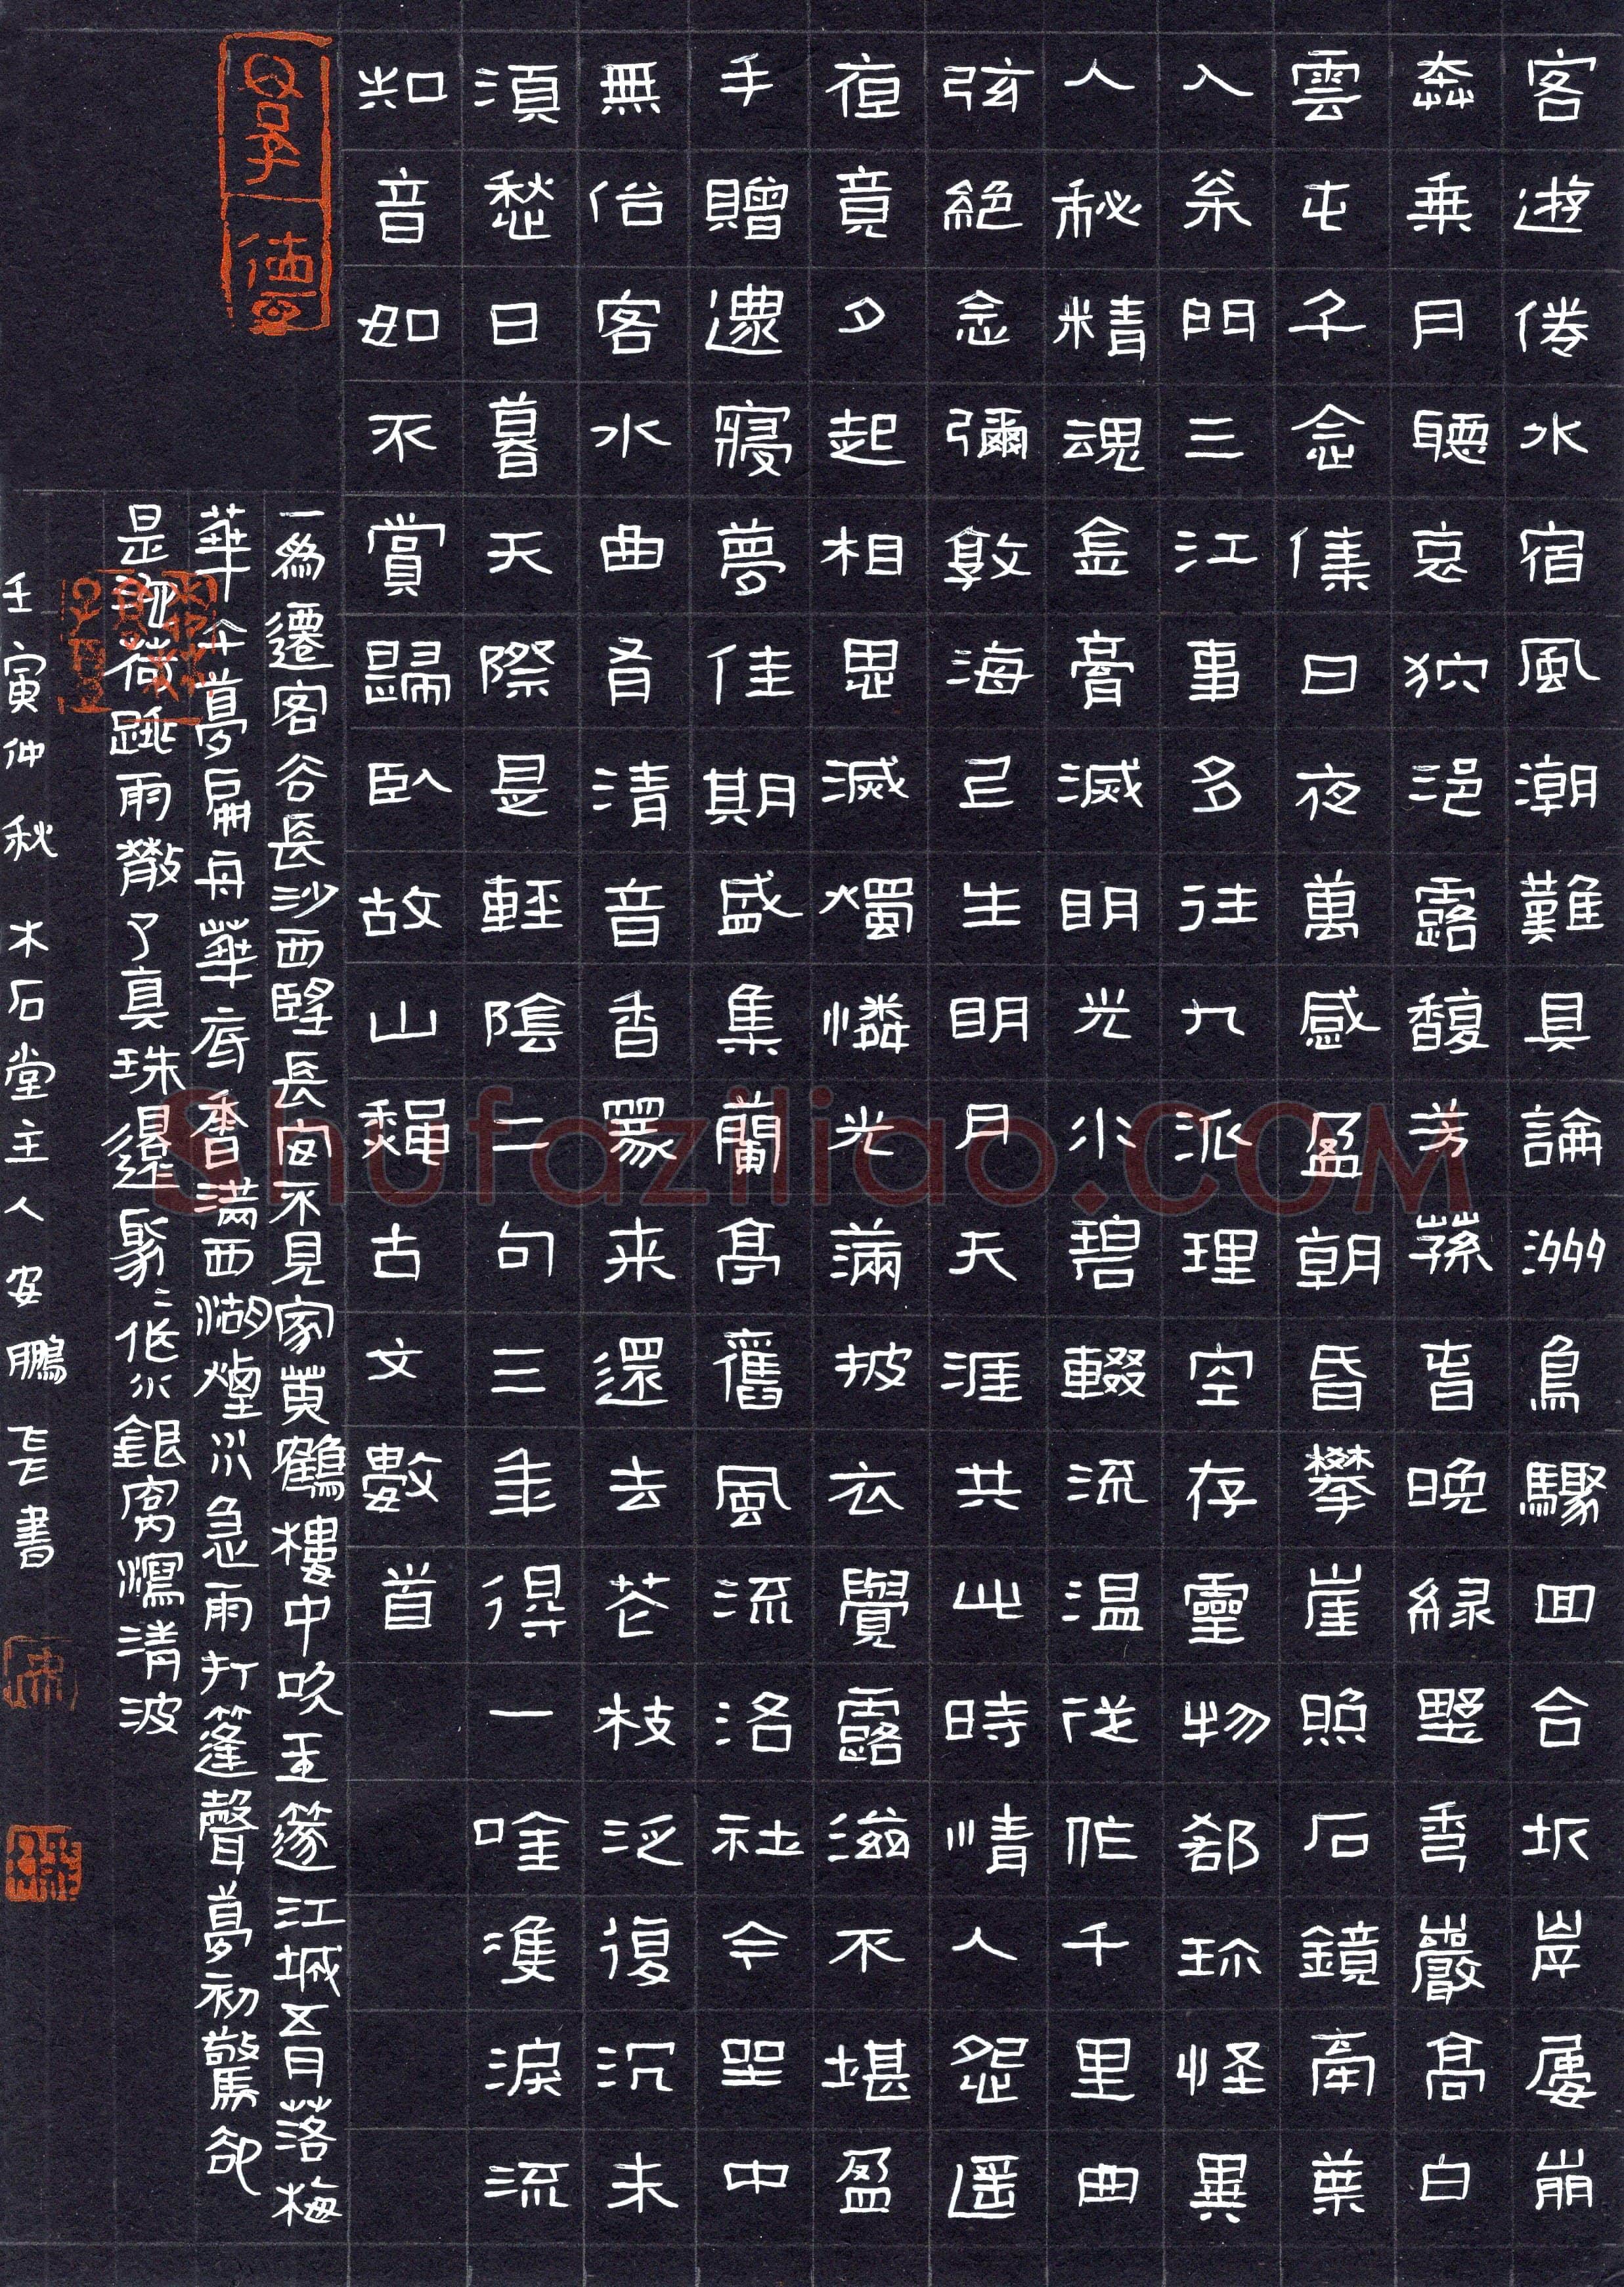 客遊倦水宿風潮難具論洲島驟回合圻岸屢崩
奔乘月聽哀狖浥露馥芳蓀春晚綠野秀巖高白
雲屯千念集日夜萬感盈朝昏攀崖照石鏡牽葉
入松門三江事多往九派理空存靈物郄珎怪異
人秘精魂金膏滅明光水碧輟流溫徒作千里曲
弦絕念彌敦海上生明月天涯共此時情人怨遙
夜竟夕起相思滅燭憐光滿披衣覺露滋不堪盈
手贈還寢夢佳期盛集蘭亭舊風流洛社今坐中
無俗客水曲有清音香篆來還去花枝泛復沉未
須愁日暮天際是輕陰二句三年得一吟雙淚流
知音如不賞歸臥故山 題古文數首
一為遷客去長沙西望長安不見家黃鶴樓中吹玉篴江城五月落梅
華 午夢扁舟華底香滿西湖煙水急雨打篷聲夢初驚卻
是池荷跳雨散了真珠還聚聚作水銀窩瀉清波
壬寅仲秋 木石堂主人安鵬飛書
Shufaziliao.COM